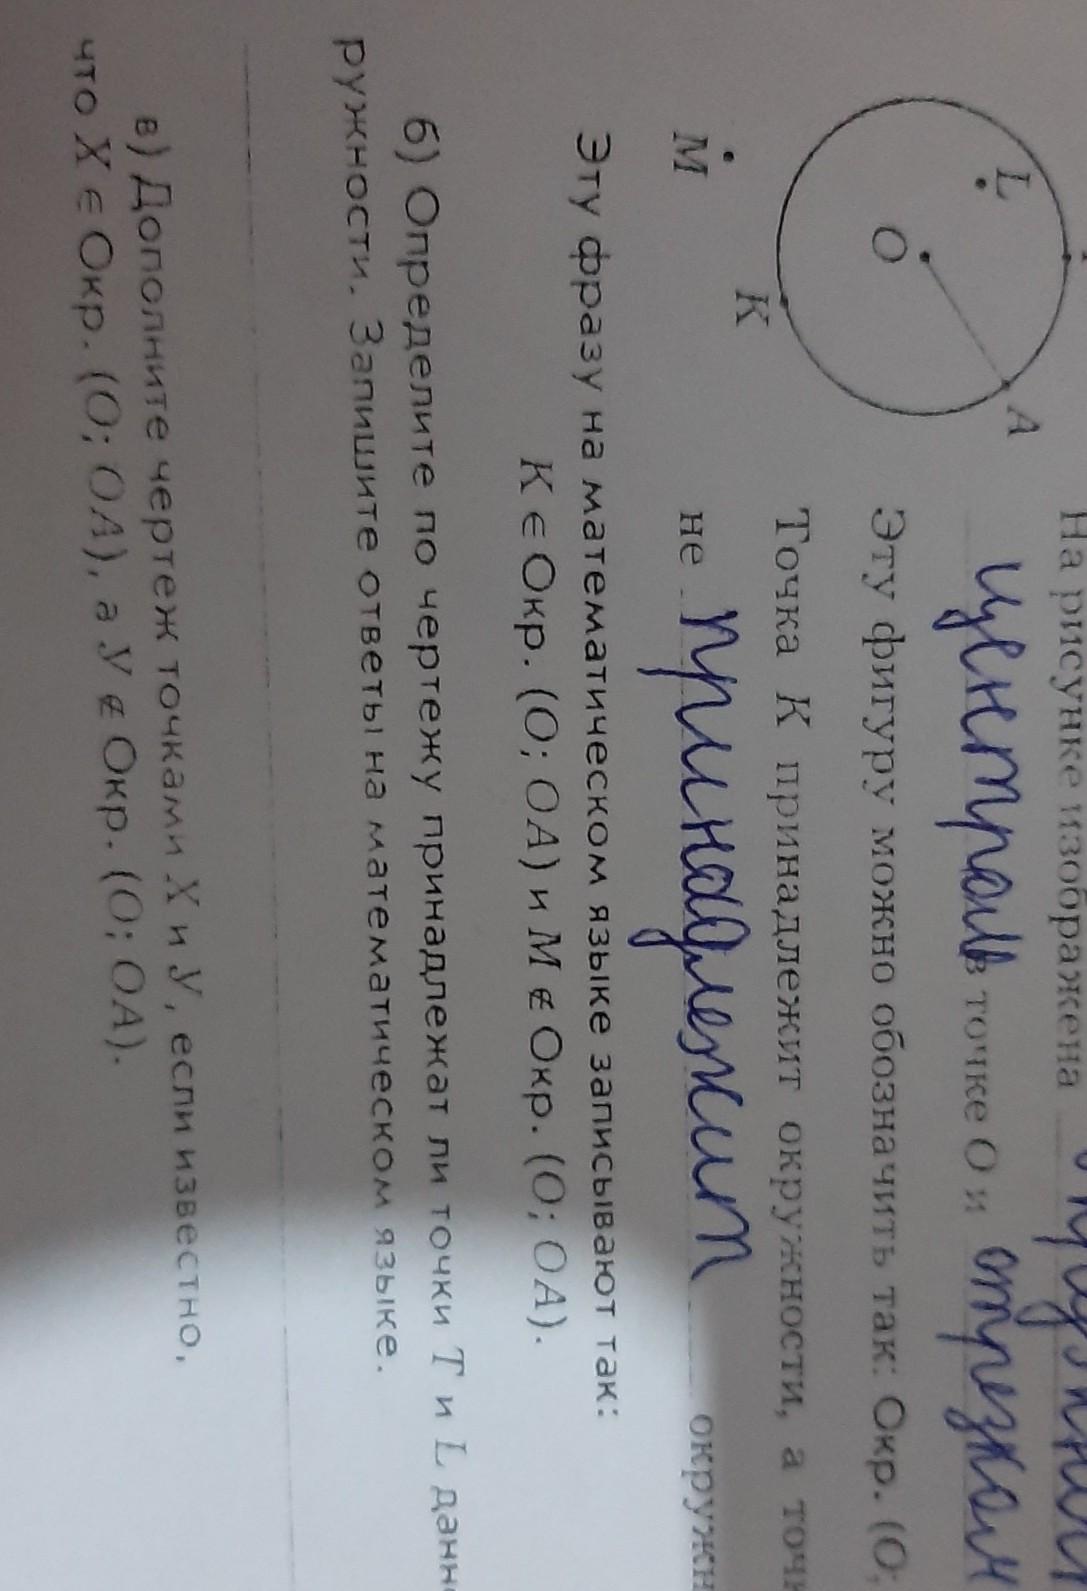 На рисунке изображена
центром в точке O и отрезком
Эту фигуру можно обозначить так: Окр. (O;
Точка K принадлежит окружности, а
не принадлежит
L
O
A
K
M
Эту фразу на математическом языке записывают так:
K ∈ Окр. (O; OA) и M ∉ Окр. (O; OA).
б) Определите по чертежу принадлежат ли точки T и L
ружности. Запишите ответы на математическом языке.
в) Дополните чертеж точками X и У, если известно,
что X ∈ Окр. (O; OA), а У ∉ Окр. (O; OA).